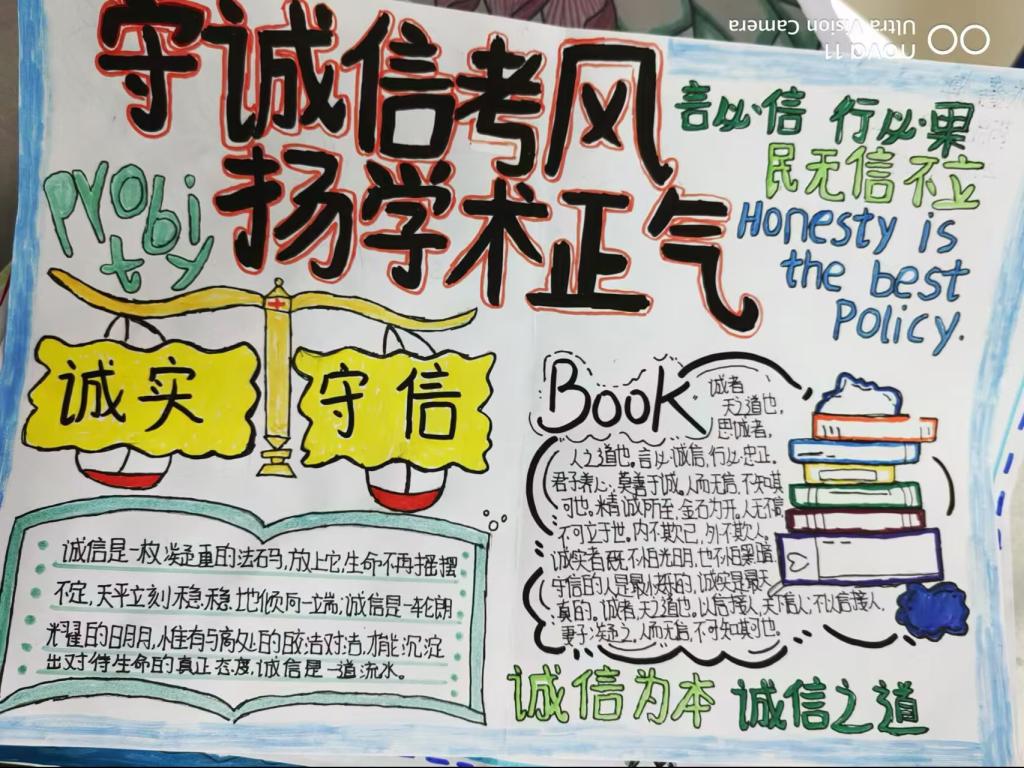 守诚信考风
扬学术正气
言必信 行必果
民无信不立
Honesty is
the best
Policy.
Probi
ty
诚实
守信
Book
诚者
天之道也,
思诚者,
人之道也。言必诚信,行必忠正。
君子养心,莫善于诚。人而无信,不知其
可也。精诚所至,金石为开。人无信
不可立于世。内不欺己,外不欺人。
诚实者既不怕光明,也不怕黑暗。
守信的人是最快乐的,诚实是最天
真的。诚者,天之道也。以信接人,天下信人;不以信接人,
妻子疑之。人而无信,不可知其可也。
诚信是一枚凝重的法码,放上它,生命不再摇摆
不定,天平立刻稳稳地倾向一端;诚信是一轮朗
耀的日明月,惟有与高处的皎洁对洁,才能沉淀
出对待生命的真正态度,诚信是一道流水。
诚信为本 诚信之道
nova 11
Ultra Vision Camera